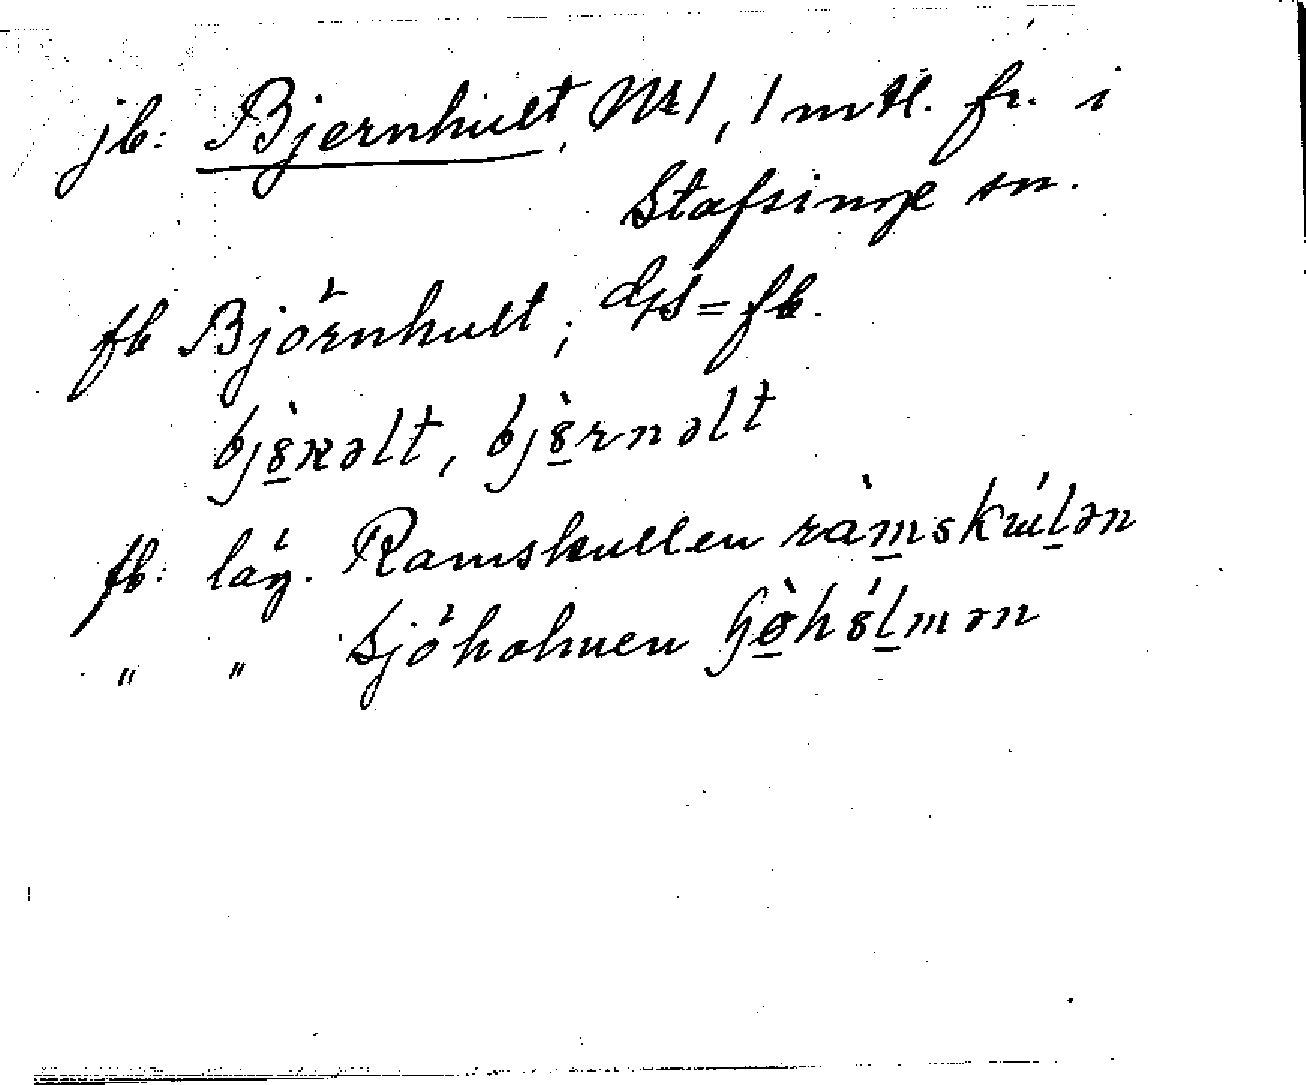 jb: Bjernhult, Nr 1, 1 mtl. fr. i
Stafsinge sn.
fb Björnhult; dps = fb.
bjö̀nəlt, bjö̀rnəlt
fb: läg. Ramskullen ràmskúlən
" " Sjöholmen